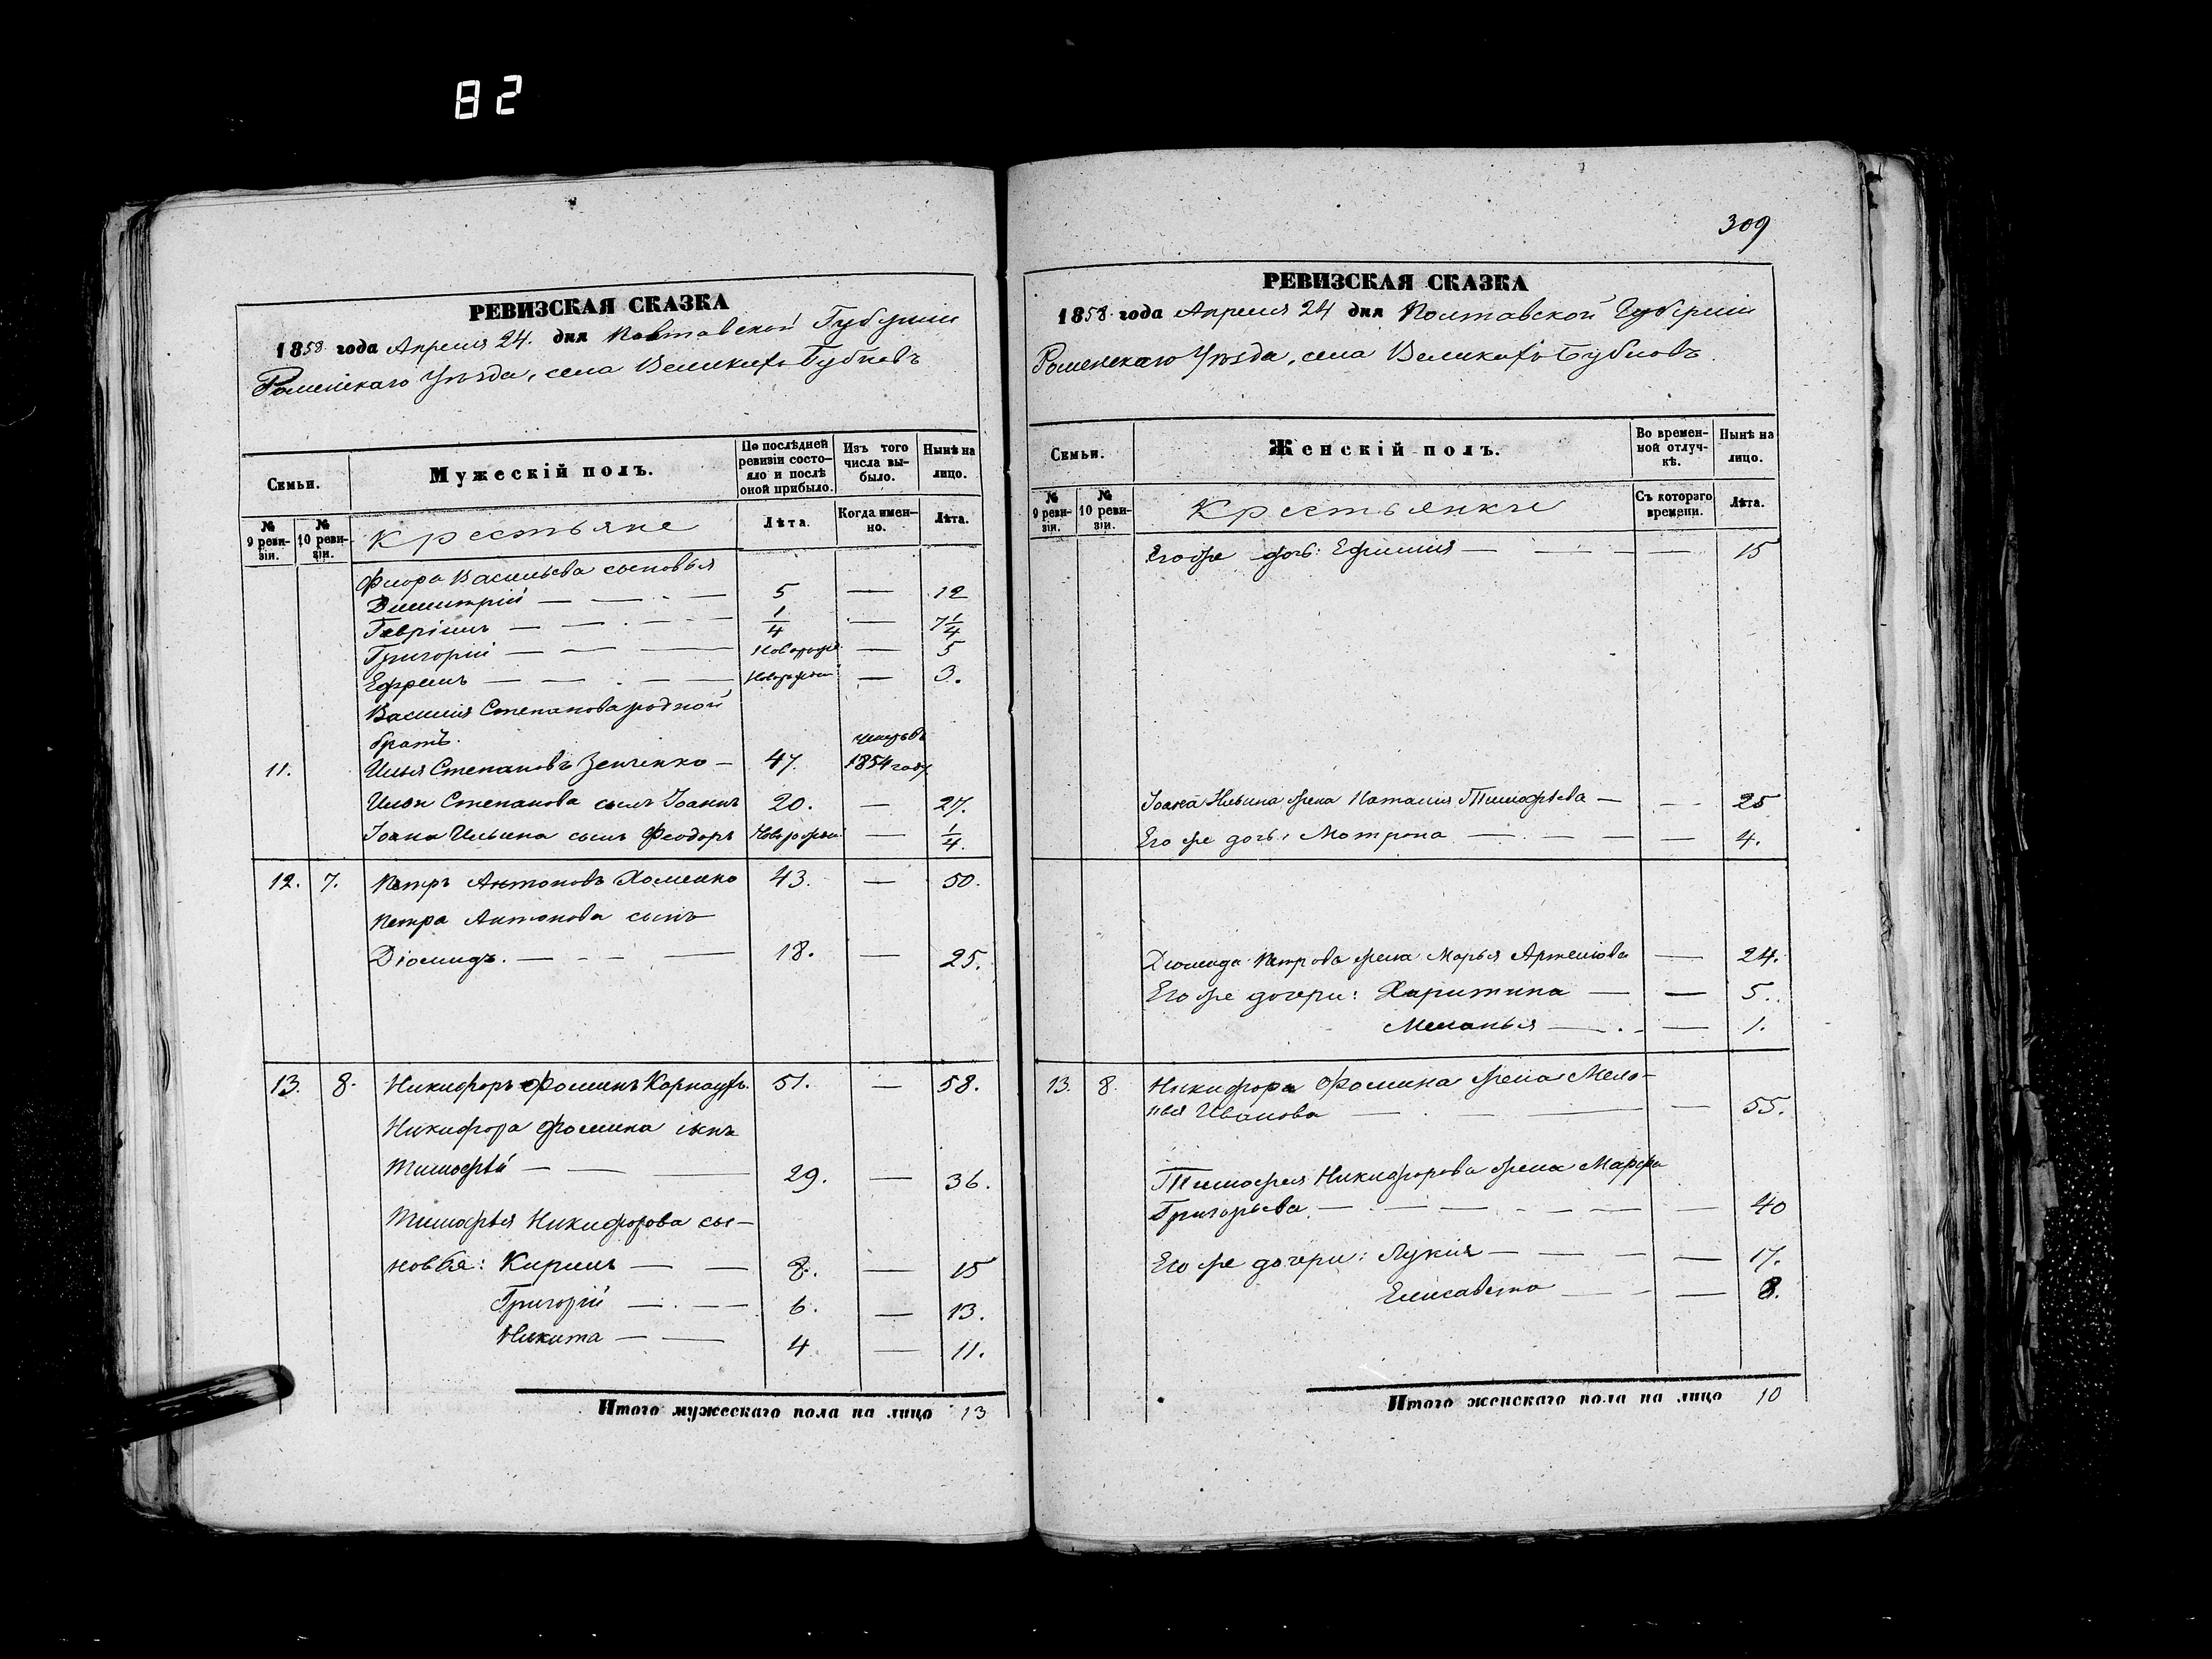 82
РЕВИЗСКАЯ СКАЗКА
1858 года Апреля 24. дня Полтавской Губерніи
Роменскаго Уѣзда, села Великихъ Бубновъ
Семьи.
Мужескій полъ.
По послѣдней ревизіи состояло и послѣ оной прибыло.
Изъ того числа выбыло.
Нынѣ на лицо.
№ 9 ревизіи.
№ 10 ревизіи.
Крестьяне
Лѣта.
Когда именно.
Лѣта.
Флора Васильева сыновья
Димитрій — — — 5 — 12
Гавріилъ — — — 1/4 — 7 1/4
Григорій — — — Новорожд — 5
Ефремъ — — — Новорожден — 3.
Василія Степанова родной
братъ.
11. Илья Степановъ Зенченко — 47. умеръ въ 1854 году
Ильи Степанова сынъ Іоаннъ 20. — 27.
Іоана Ильина сынъ Феодоръ Новорожден. — 1/4.
12. 7. Петръ Антоновъ Хоменко 43. — 50.
Петра Антонова сынъ
Діомидъ. — — — 18. — 25.
13. 8. Никифоръ Фоминъ Карнаухъ. 51. — 58.
Никифора Фомина сынъ
Тимофѣй — — — 29. — 36.
Тимофѣя Никифорова сы-
новья: Кирилъ — — 8. — 15
Григорій — — 6. — 13.
Никита — — 4 — 11.
Итого мужескаго пола на лицо 13
309
РЕВИЗСКАЯ СКАЗКА
1858 года Апреля 24 дня Полтавской Губерніи
Роменскаго Уѣзда, села Великихъ Бубновъ.
Семьи.
Женскій полъ.
Во временной отлучкѣ.
Нынѣ на лицо.
№ 9 ревизіи.
№ 10 ревизіи.
Крестьянки
Съ котораго времени.
Лѣта.
Его же дочь: Ефимия — — — — 15
Іоана Ильина жена Наталия Тимофѣева — — — 25
Его же дочь: Мотрона — — — — 4.
Діомида Петрова жена Марья Артемова — 24.
Его же дочери: Харитина — — 5.
Меланья — — — 1.
13. 8. Никифора Фомина жена Мела-
нья Иванова — — — — 55.
Тимофея Никифорова жена Марфа
Григорьева — — — — — — 40
Его же дочери: Лукія — — — — 17.
Елисавета — — — 8.
Итого женскаго пола на лицо 10